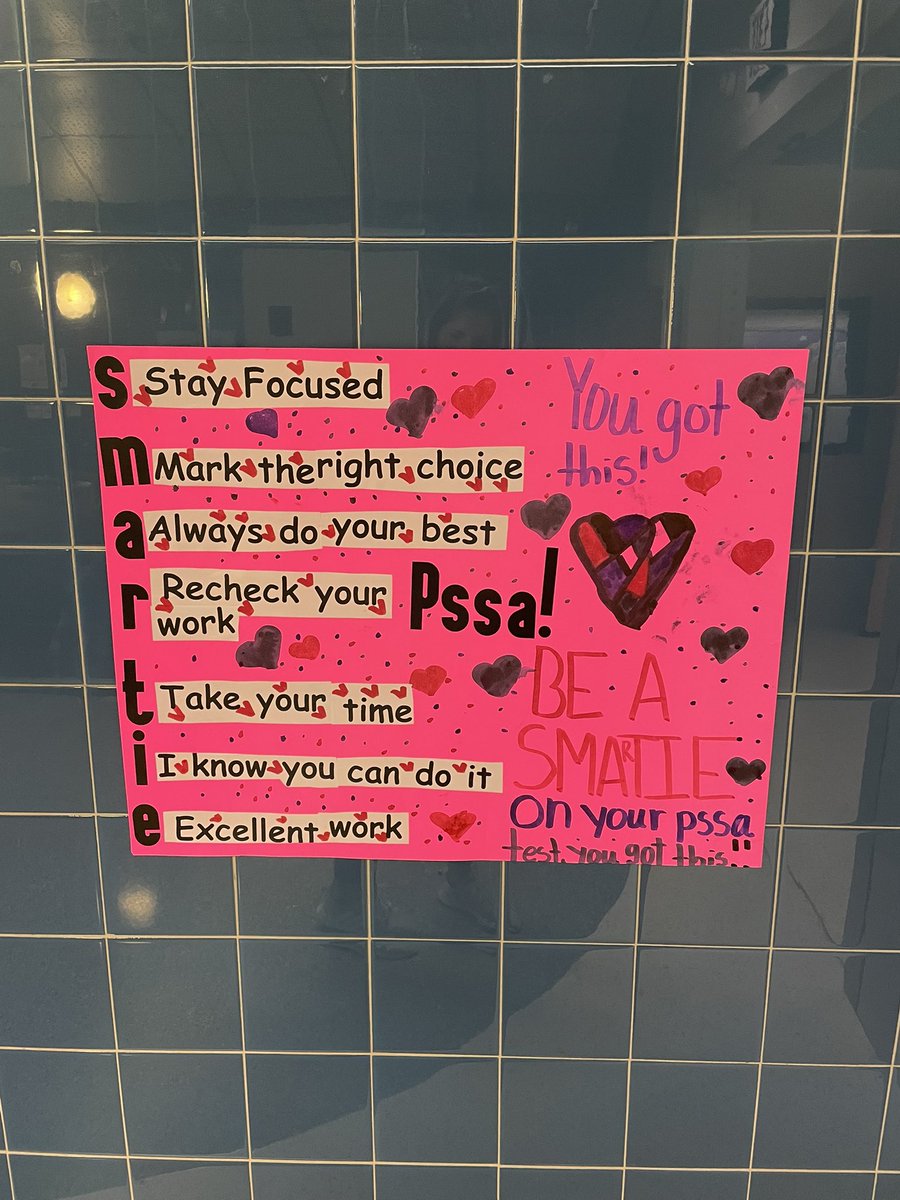 s Stay Focused
m Mark the right choice
a Always do your best
r Recheck your
work
t Take your time
i I know you can do it
e Excellent work
Pssa!
You got
this!
BE A
SMARTIE
On your pssa
test. you got this..